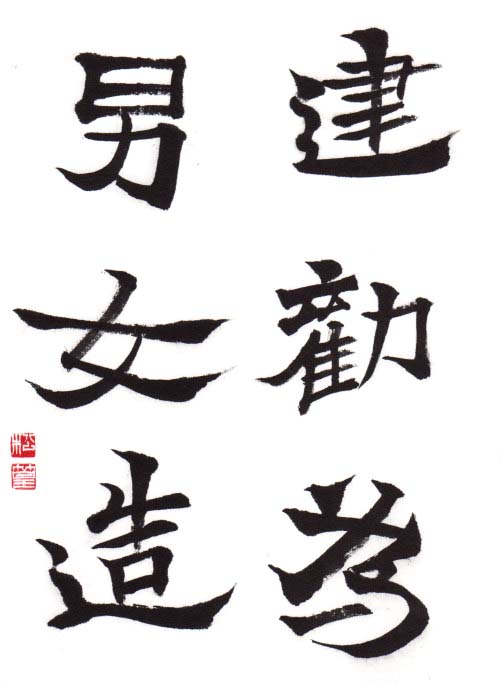 建勸
男女造